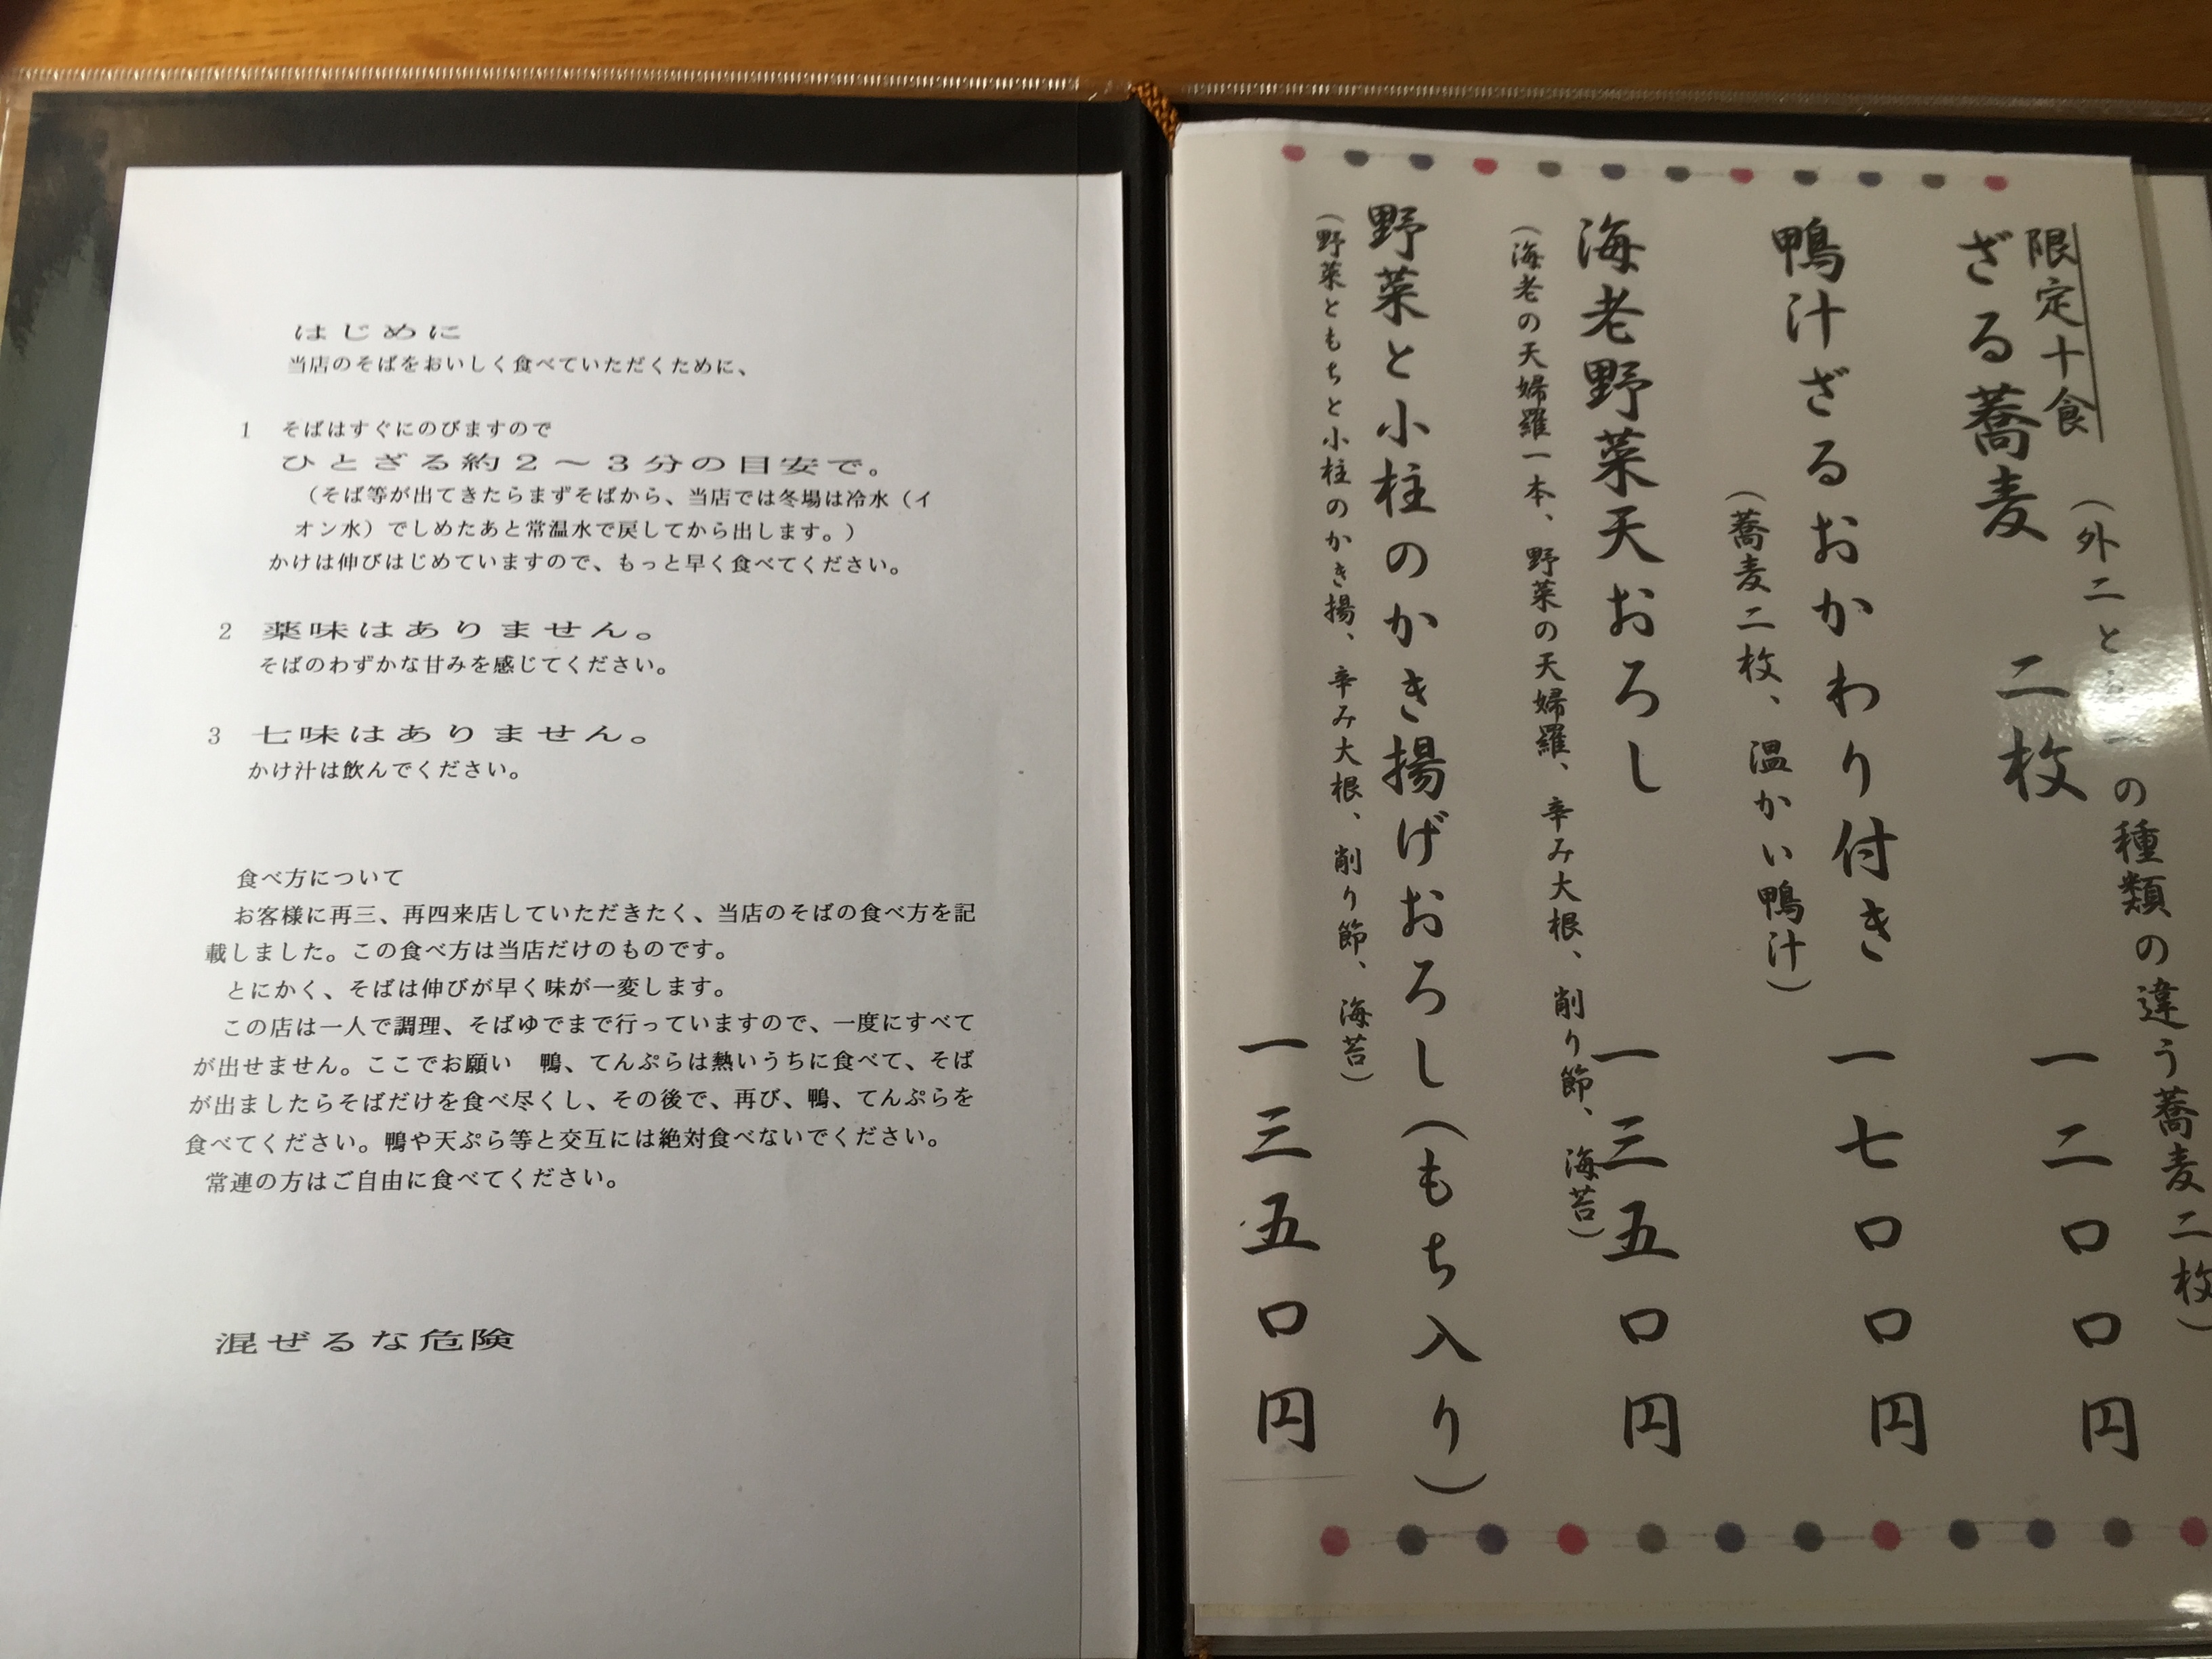 はじめに
当店のそばをおいしく食べていただくために、
1 そばはすぐにのびますので
ひとざる約2~3分の目安で。
（そば等が出てきたらまずそばから、当店では冬場は冷水（イ
オン水）でしめたあと常温水で戻してから出します。）
かけは伸びはじめていますので、もっと早く食べてください。
2 薬味はありません。
そばのわずかな甘みを感じてください。
3 七味はありません。
かけ汁は飲んでください。
食べ方について
お客様に再三、再四来店していただきたく、当店のそばの食べ方を記
載しました。この食べ方は当店だけのものです。
とにかく、そばは伸びが早く味が一変します。
この店は一人で調理、そばゆでまで行っていますので、一度にすべて
が出せません。ここでお願い　鴨、てんぷらは熱いうちに食べて、そば
が出ましたらそばだけを食べ尽くし、その後で、再び、鴨、てんぷらを
食べてください。鴨や天ぷら等と交互には絶対食べないでください。
常連の方はご自由に食べてください。
混ぜるな危険
限定十食
（外二と の種類の違う蕎麦二枚）
ざる蕎麦 二枚 一二〇〇円
鴨汁ざるおかわり付き 一七〇〇円
（蕎麦二枚、温かい鴨汁）
海老野菜天おろし 一三五〇円
（海老の天婦羅一本、野菜の天婦羅、辛み大根、削り節、海苔）
野菜と小柱のかき揚げおろし（もち入り）
（野菜ともちと小柱のかき揚、辛み大根、削り節、海苔）
一三五〇円